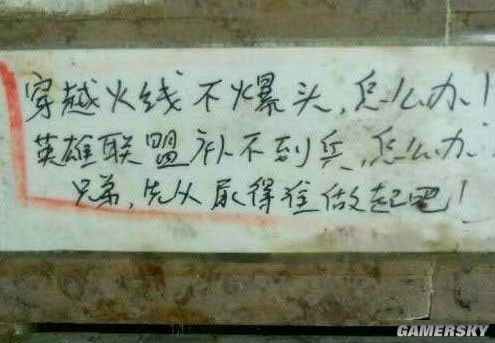 穿越火线不爆头,怎么办!
英雄联盟补不到兵,怎么办
兄弟,先从尿得准做起吧!
GAMERSKY